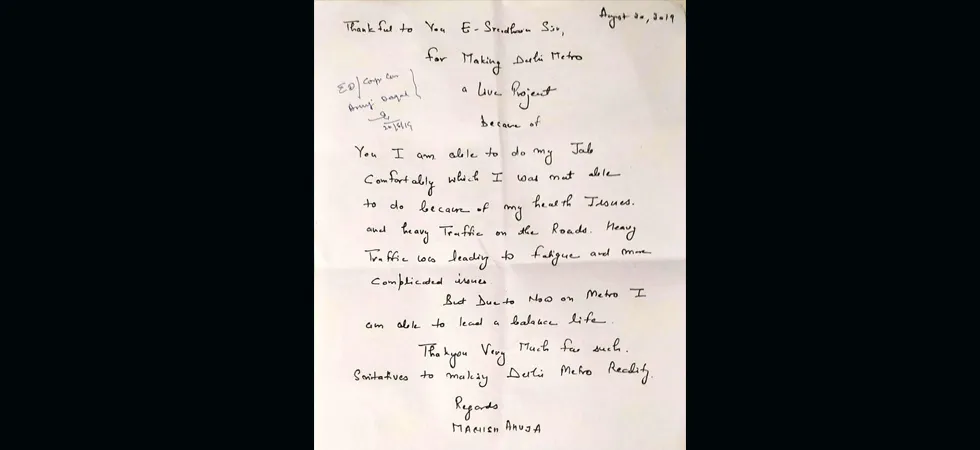 August 20, 2019
Thankful to You E-Sreedharan Sir,
for Making Delhi Metro
a Live Project
because of
ED/Corp Com
Anuj Dayal
20/8/19
You I am able to do my Job
Comfortably which I was not able
to do because of my health Issues.
and heavy Traffic on the Roads. Heavy
Traffic was leading to fatigue and more
complicated issues
But Due to Now on Metro I
am able to lead a balance life.
Thakyou Very Much for such.
to making Delhi Metro Reality.
Regards
MANISH AHUJA